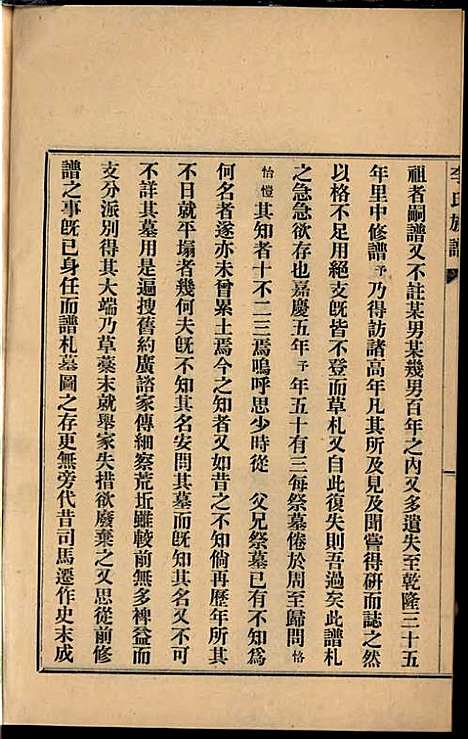 李氏族譜
祖者嗣譜又不註某男某幾男百年之內又多遺失至乾隆三十五
年里中修譜予乃得訪諸高年凡其所及見及聞嘗得研而誌之然
以格不足用絕支旣皆不登而草札又自此復失則吾過矣此譜札
之急急欲存也嘉慶五年予年五十有三每祭墓倦於周至歸問恪
怡愷其知者十不二三焉嗚呼思少時從 父兄祭墓已有不知為
何名者遂亦未曾累土焉今之知者又如昔之不知倘再歷年所其
不日就平塌者幾何夫旣不知其名安問其墓旣不知其墓何可
不詳其墓用是遍搜舊約廣諮家傳細察荒坵雖較前無多裨益而
支分派別得其大端乃草藁未就舉家失措欲廢棄之又思從前修
譜之事旣已身任而譜札墓圖之存更無旁代昔司馬遷作史未成